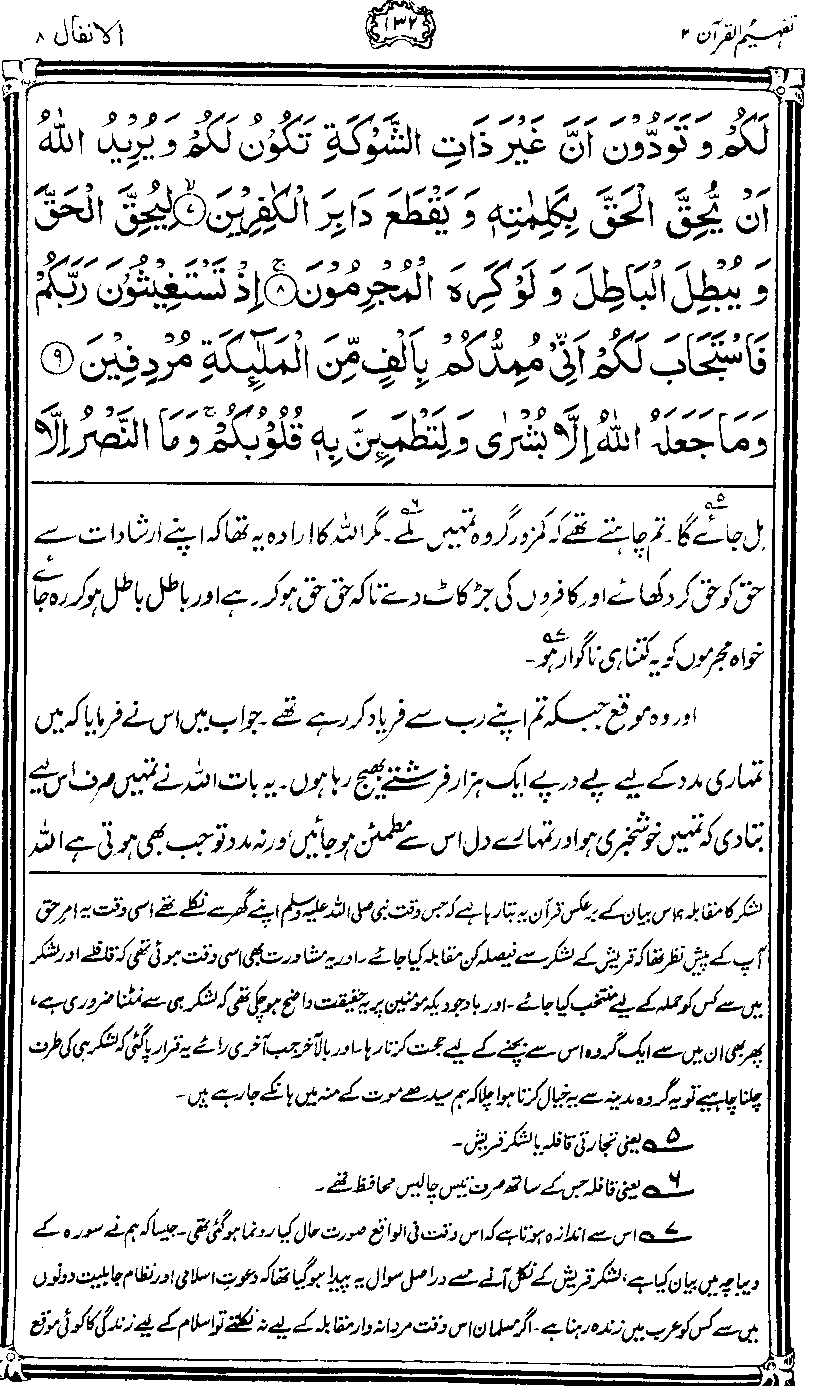 تفہیم القرآن ۲
۱۳۲
الانفال ۸
لَكُمْ وَ تَوَدُّوْنَ اَنَّ غَيْرَ ذَاتِ الشَّوْكَةِ تَكُوْنُ لَكُمْ وَ يُرِيْدُ اللّٰهُ
اَنْ يُّحِقَّ الْحَقَّ بِكَلِمٰتِهٖ وَ يَقْطَعَ دَابِرَ الْكٰفِرِيْنَ ۙ﴿۷﴾ لِيُحِقَّ الْحَقَّ
وَ يُبْطِلَ الْبَاطِلَ وَ لَوْ كَرِهَ الْمُجْرِمُوْنَ ۚ﴿۸﴾ اِذْ تَسْتَغِيْثُوْنَ رَبَّكُمْ
فَاسْتَجَابَ لَكُمْ اَنِّيْ مُمِدُّكُمْ بِاَلْفٍ مِّنَ الْمَلٰٓئِكَةِ مُرْدِفِيْنَ ﴿۹﴾
وَمَا جَعَلَهُ اللّٰهُ اِلَّا بُشْرٰى وَ لِتَطْمَئِنَّ بِهٖ قُلُوْبُكُمْ ۚ وَمَا النَّصْرُ اِلَّا
مل جائے گا۵۔ تم چاہتے تھے کہ کمزور گروہ تمہیں ملے۶۔ مگر اللہ کا ارادہ یہ تھا کہ اپنے ارشادات سے
حق کو حق کر دکھائے اور کافروں کی جڑ کاٹ دے تاکہ حق حق ہو کر رہے اور باطل باطل ہو کر رہ جائے
خواہ مجرموں کو یہ کتنا ہی ناگوار ہو۷۔
اور وہ موقع جبکہ تم اپنے رب سے فریاد کر رہے تھے۔ جواب میں اس نے فرمایا کہ میں
تمہاری مدد کے لیے پے در پے ایک ہزار فرشتے بھیج رہا ہوں۔ یہ بات اللہ نے تمہیں صرف اس لیے
بتا دی کہ تمہیں خوشخبری ہو اور تمہارے دل اس سے مطمئن ہو جائیں، ورنہ مدد تو جب بھی ہوتی ہے اللہ
لشکر کا مقابلہ! اس بیان کے برعکس قرآن یہ بتا رہا ہے کہ جس وقت نبی صلی اللہ علیہ وسلم اپنے گھر سے نکلے تھے اسی وقت یہ امر حق
آپ کے پیش نظر تھا کہ قریش کے لشکر سے فیصلہ کن مقابلہ کیا جائے۔ اور یہ مشاورت بھی اسی وقت ہوئی تھی کہ قافلے اور لشکر
میں سے کس کو حملہ کے لیے منتخب کیا جائے۔ اور باوجودیکہ مومنین پر یہ حقیقت واضح ہو چکی تھی کہ لشکر ہی سے نمٹنا ضروری ہے،
پھر بھی ان میں سے ایک گروہ اس سے بچنے کے لیے حجت کرتا رہا۔ اور بالآخر جب آخری رائے یہ قرار پا گئی کہ لشکر ہی کی طرف
چلنا چاہیے تو یہ گروہ مدینہ سے یہ خیال کرتا ہوا چلا کہ ہم سیدھے موت کے منہ میں ہانکے جا رہے ہیں۔
۵ یعنی تجارتی قافلہ یا لشکر قریش۔
۶ یعنی قافلہ جس کے ساتھ صرف تیس چالیس محافظ تھے۔
۷ اس سے اندازہ ہوتا ہے کہ اس وقت فی الواقع صورت حال کیا رونما ہو گئی تھی۔ جیسا کہ ہم نے سورہ کے
دیباچہ میں بیان کیا ہے، لشکر قریش کے نکل آنے سے دراصل سوال یہ پیدا ہو گیا تھا کہ دعوت اسلامی اور نظام جاہلیت دونوں
میں سے کس کو عرب میں زندہ رہنا ہے۔ اگر مسلمان اس وقت مردانہ وار مقابلہ کے لیے نہ نکلتے تو اسلام کے لیے زندگی کا کوئی موقع